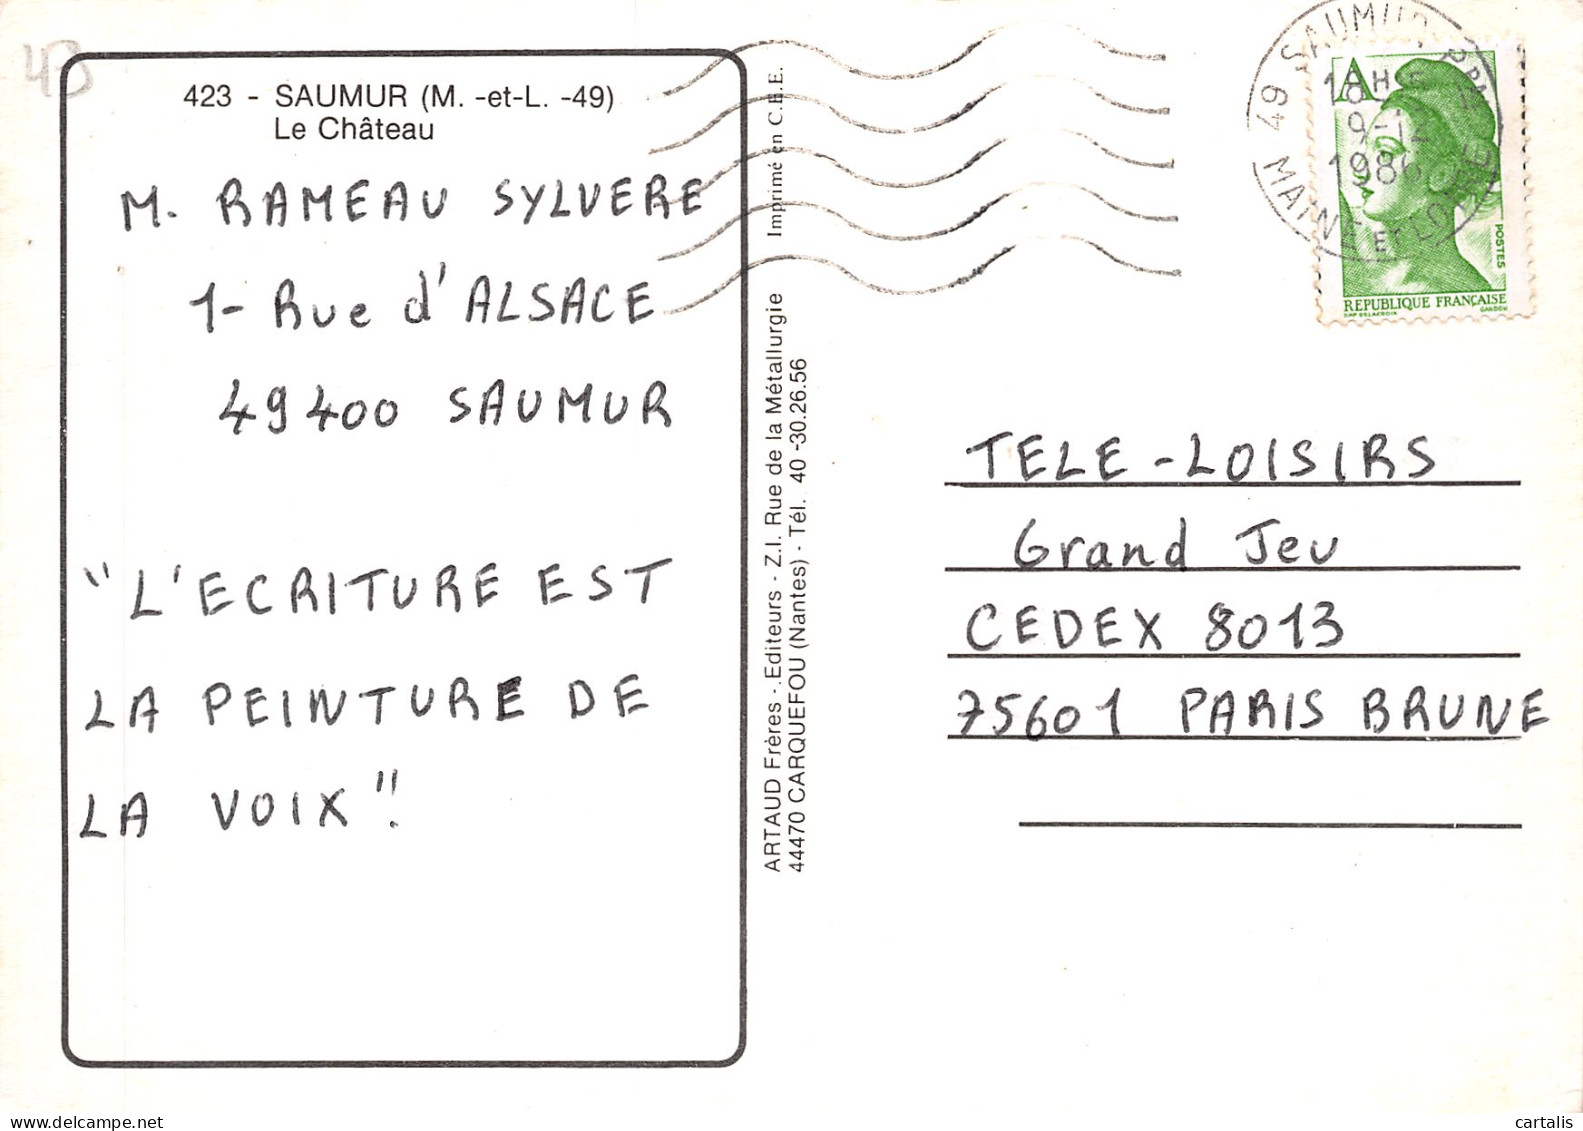 423 - SAUMUR (M. -et-L. -49)
Le Château
M. RAMEAU SYLVERE
1- Rue d'ALSACE
49400 SAUMUR
"L'ECRITURE EST
LA PEINTURE DE
LA VOIX".
ARTAUD Frères - Editeurs - Z.I. Rue de la Métallurgie Imprimé en C.E.E.
44470 CARQUEFOU (Nantes) - Tél. 40 -30.26.56
49 SAUMUR
18H
9-12
1986
MAINE ET LOIRE
A
POSTES
REPUBLIQUE FRANÇAISE
DAP DELACROIX GANDON
TELE-LOISIRS
Grand Jeu
CEDEX 8013
75601 PARIS BRUNE
www.delcampe.net
cartalis